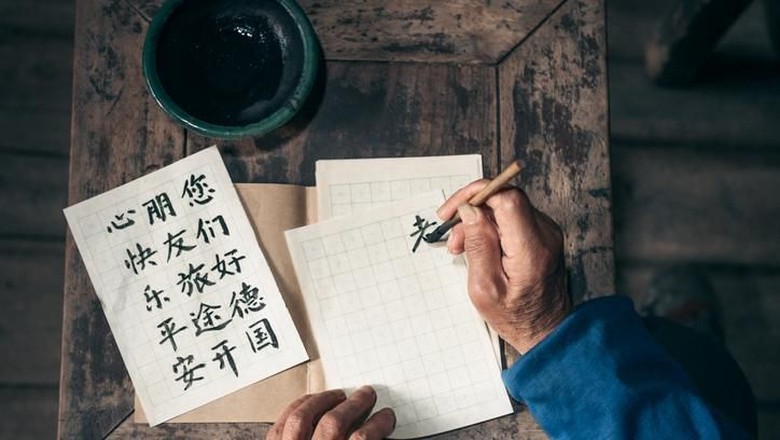 您们好德国
朋友旅途开
心快乐平安